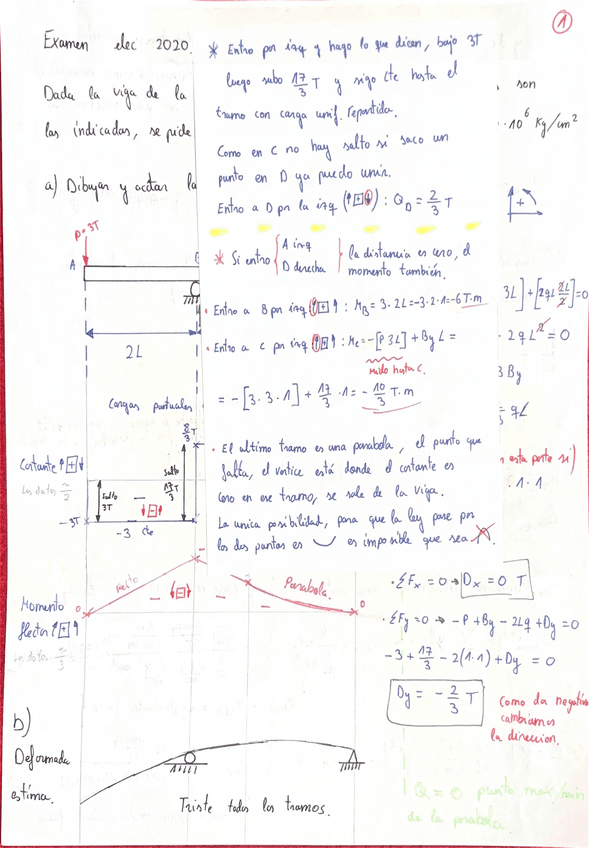 1
Examen elec 2020.
Dada la viga de la
son
las indicadas, se pide
·10⁶ Kg/cm²
a) Dibujar y acotar la
* Entro por izq y hago lo que dicen, bajo 3T
luego subo 17/3 T y sigo cte hasta el
tramo con carga unif. repartida.
Como en C no hay salto si saco un
punto en D ya puedo unir.
Entro a D por la izq (↑[+]↓) : Q_D = 2/3 T
* Si entro { A izq
D derecha } la distancia es cero, el
momento también.
· Entro a B por izq (↑[+]↑) : M_B = 3·2L = -3·2·1 = -6 T·m
· Entro a C por izq (↑[+]↑) : M_C = -[P 3L] + By L =
mido hasta C.
= -[3·3·1] + 17/3 ·1 = -10/3 T·m
· El ultimo tramo es una parabola, el punto que
falta, el vertice está donde el cortante es
cero en ese tramo, se sale de la viga.
La unica posibilidad, para que la ley pase por
los dos puntos es ‿ es imposible que sea
P=3T
A
2L
+
3L] + [2qL 2L/2] = 0
· 2qL² = 0
3 By
= qL
esta parte si)
·1·1
Cargas puntuales
8/3 T
Cortante ↑[+]↓
salto
3T
-
↓[-]↑
salto
17/3 T
-3T
-3 cte
Momento
flector ↑[+]↑
0
recto
- ↓[-]↓ -
-
-
Parabola.
0
· ΣFx = 0 → Dx = 0 T
· ΣFy = 0 → -P + By - 2Lq + Dy = 0
-3 + 17/3 - 2(1·1) + Dy = 0
Dy = -2/3 T
Como da negativo
cambiamos
la direccion.
b)
Deformada
estima.
Triste todos los tramos.
Q = 0 punto max/min
de la parabola